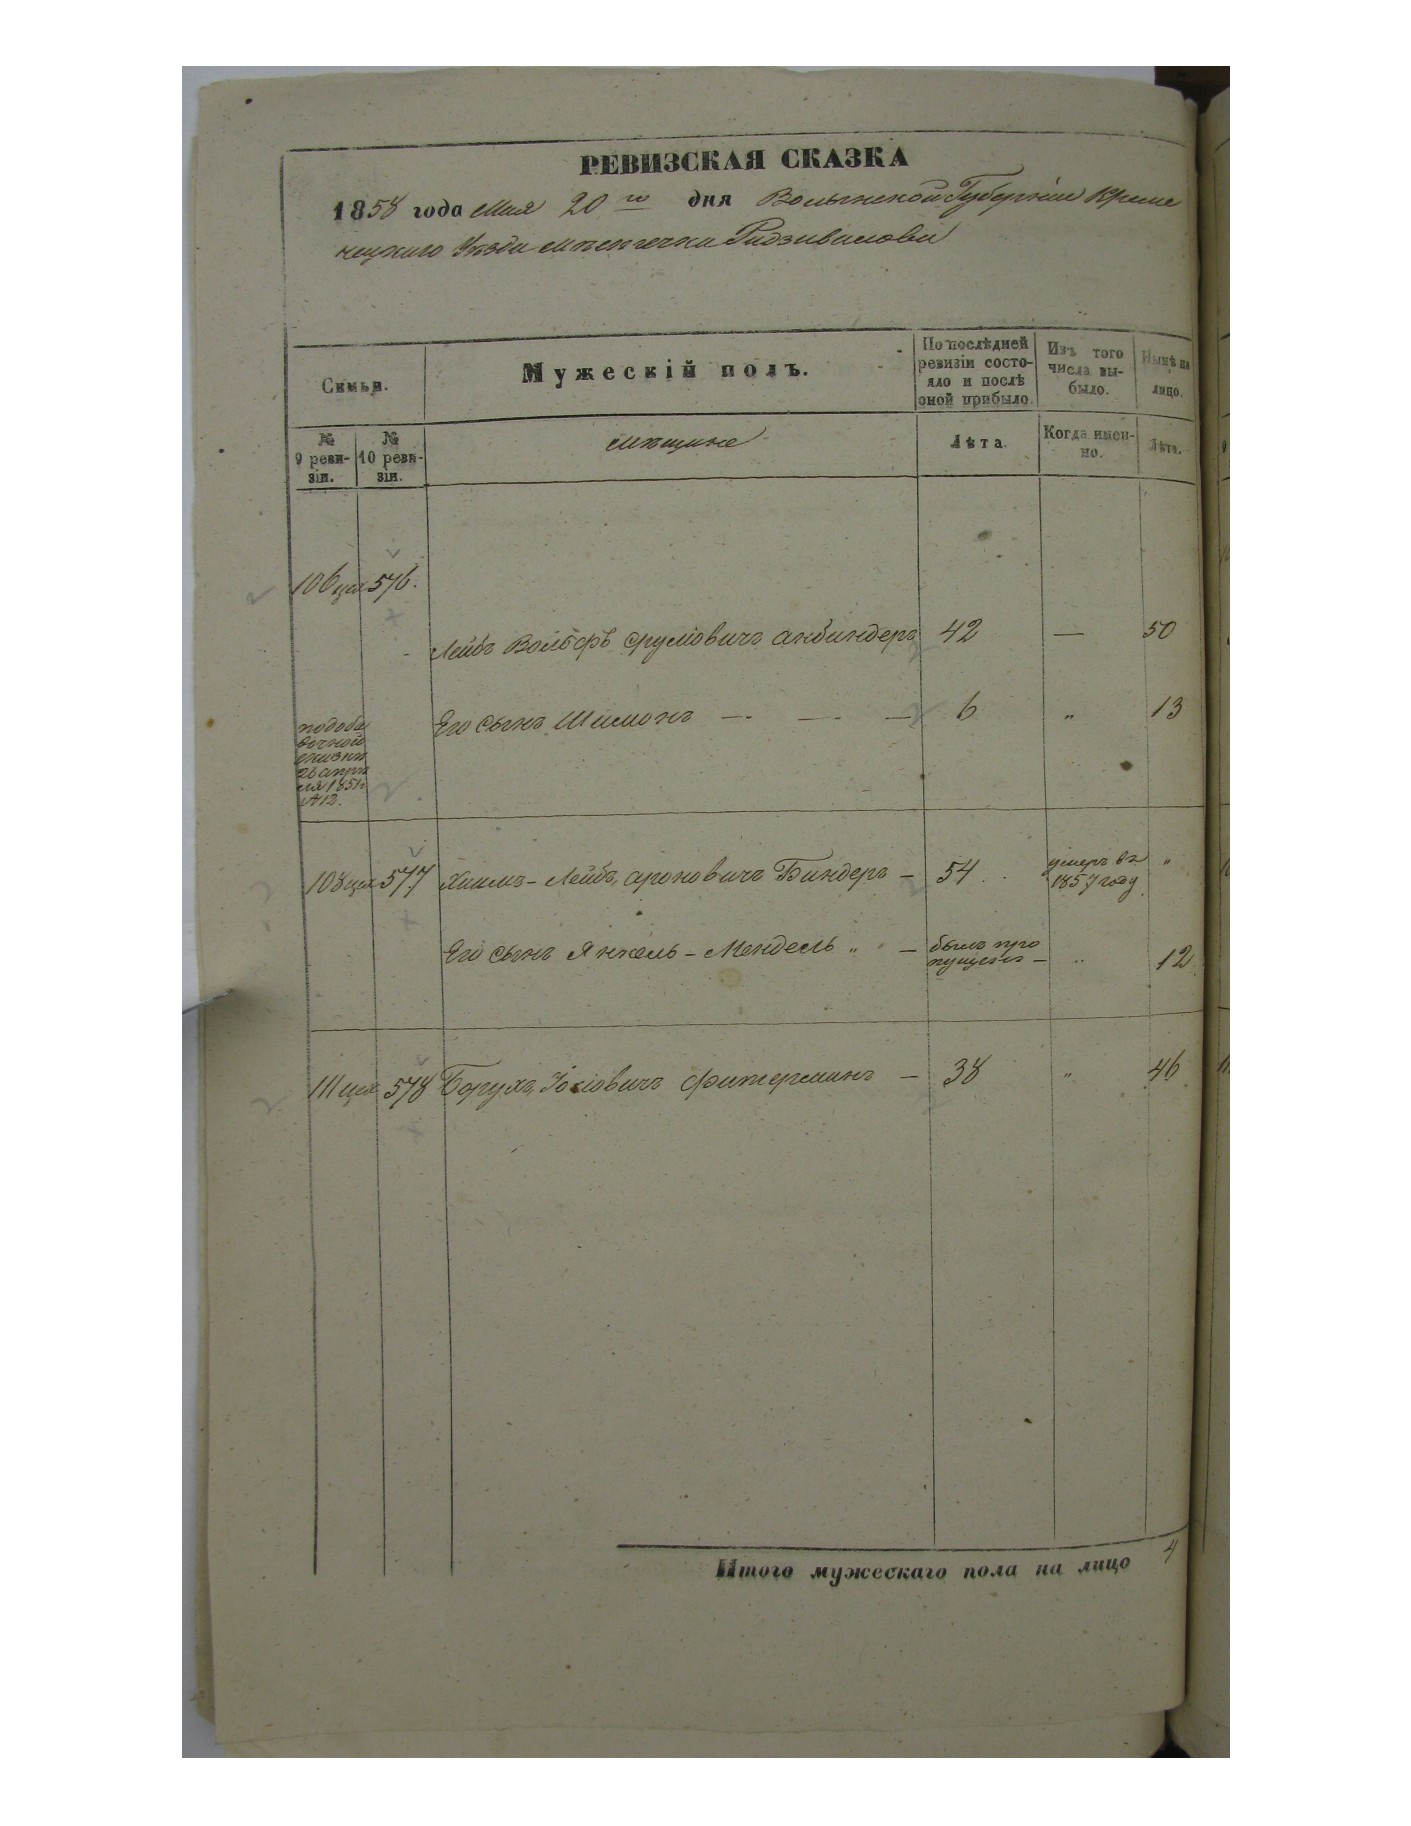 РЕВИЗСКАЯ СКАЗКА
1858 года Мая 20 го дня Волынской Губерніи Креме
нецкаго Уезда местечка Радзивилова
Семьи.
Мужескій полъ.
По послѣдней ревизіи состо-
яло и послѣ
оной прибыло.
Изъ того
числа вы-
было.
Нынѣ на
лицо.
№
9 реви-
зіи.
№
10 реви-
зіи.
мѣщане
Лѣта.
Когда имен-
но.
Лѣта.
106 576.
Лейбъ Вольфъ Сруліовичъ 42 — 50
Его сынъ Шимонъ — — — 6 „ 13
26 апрѣ
ля 1851 г
№ 12.
108 577 Хаимъ-Лейбъ Ароновичъ Биндеръ — 54 умеръ въ
1857 году „
Его сынъ Янкель-Мендель „ — былъ про
пущенъ — „ 12
111 578 Борухъ Іосіовичъ Фитерманъ — 38 „ 46
Итого мужескаго пола на лицо 4